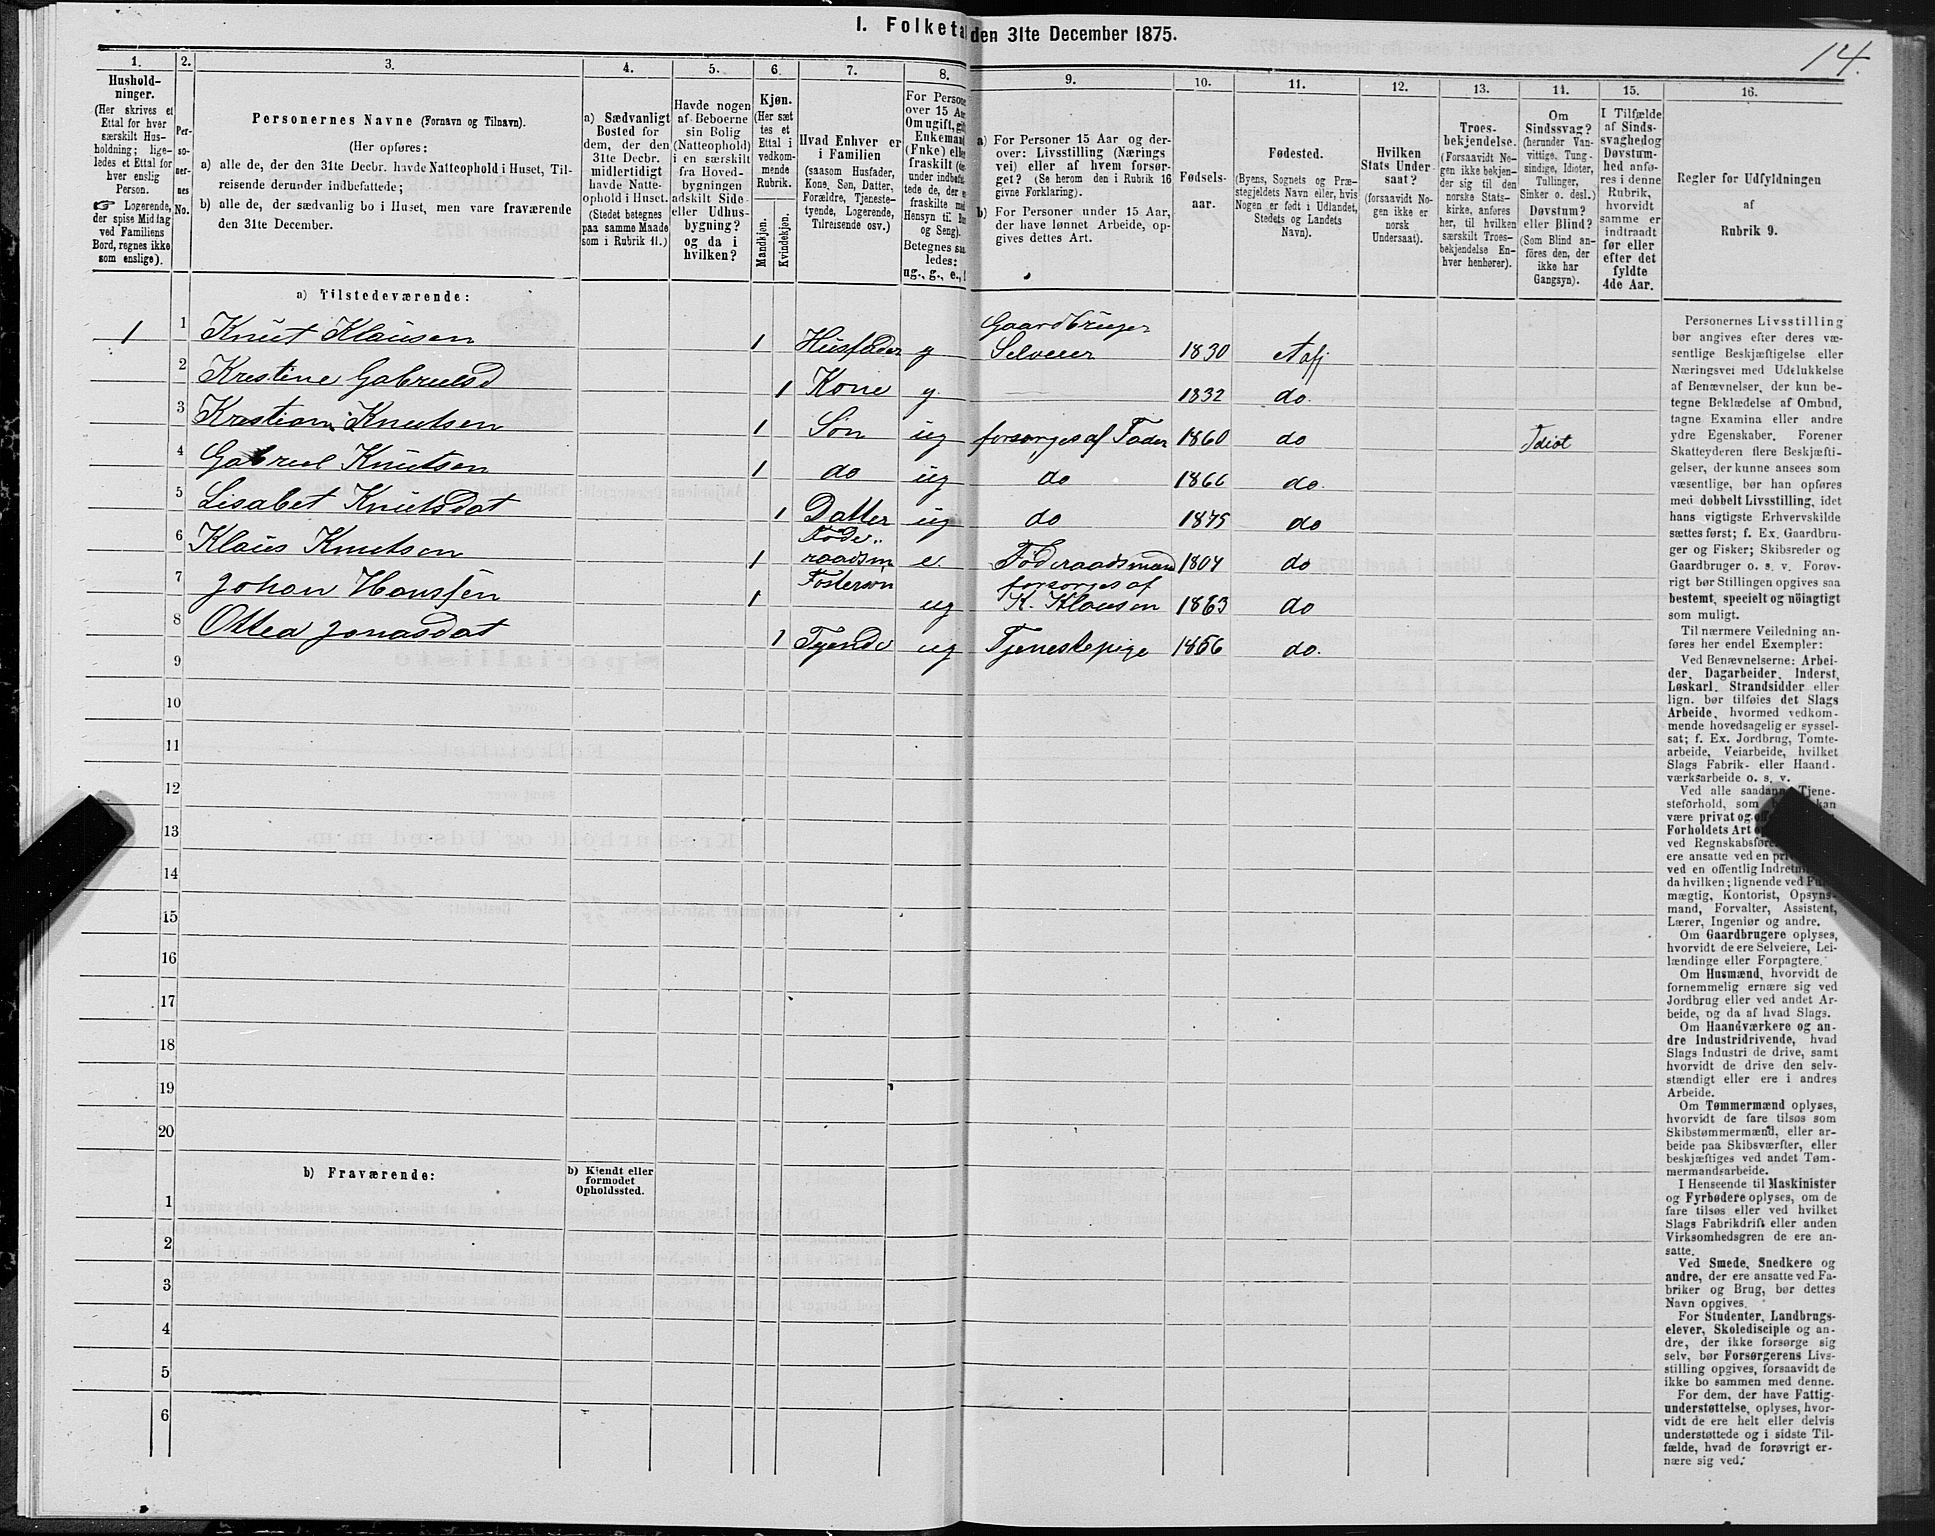 I. Folketa den 31te December 1875.
14.
1.
Hushold-
ninger.
(Her skrives et
Ettal for hver
særskilt Hus-
holdning; lige-
ledes et Ettal for
hver enslig
Person.
Logerende,
der spise Middag
ved Familiens
Bord, regnes ikke
som enslige).
2.
Per-
so-
ner-
nes
No.
3.
Personernes Navne (Fornavn og Tilnavn).
(Her opføres:
a) alle de, der den 31te Decbr. havde Natteophold i Huset, Til-
reisende derunder indbefattede;
b) alle de, der sædvanlig bo i Huset, men vare fraværende
den 31te December.
4.
a) Sædvanligt
Bosted for
dem, der den
31te Decbr.
midlertidigt
havde Natte-
ophold i Huset.
(Stedet betegnes
paa samme Maade
som i Rubrik 11.)
5.
Havde nogen
af Beboerne
sin Bolig
(Natteophold)
i en særskilt
fra Hoved-
bygningen
adskilt Side-
eller Udhus-
bygning?
og da i
hvilken?
6.
Kjøn.
(Her sæt
tes et
Ettal i
vedkom-
mende
Rubrik.
Mandkjøn.
Kvindekjøn.
7.
Hvad Enhver er
i Familien
(saasom Husfader,
Kone, Søn, Datter,
Forældre, Tjeneste-
tyende, Logerende,
Tilreisende osv.)
8.
For Persone
over 15 Aar
Om ugift, gift
Enkemand
(Enke) eller
fraskilt
under indbefat
tede de, der
fraskilte med
Hensyn til Bor
og Seng).
Betegnes saa
ledes:
ug., g., e.,
9.
a) For Personer 15 Aar og der-
over: Livsstilling (Nærings
vei) eller af hvem forsør-
get? (Se herom den i Rubrik 16
givne Forklaring).
b) For Personer under 15 Aar,
der have lønnet Arbeide, op-
gives dettes Art.
10.
Fødsels-
aar.
11.
Fødested.
(Byens, Sognets og Præ-
stegjeldets Navn eller, hvis
Nogen er født i Udlandet,
Stedets og Landets
Navn).
12.
Hvilken
Stats Under
saat?
(forsaavidt No-
gen ikke er
norsk
Undersaat).
13.
Troes-
bekjendelse.
(Forsaavidt No-
gen ikke bekjen-
der sig til den
norske Stats-
kirke, anføres
her, til hvilken
særskilt Troes-
bekjendelse En-
hver henhører).
14.
Om
Sindssvag?
(herunder Van-
vittige, Tung-
sindige, Idioter,
Tullinger,
Sinker o. desl.)
Døvstum?
eller Blind?
(Som Blind an-
føres den, der
ikke har
Gangsyn).
15.
I Tilfælde
af Sinds-
svaghed og
Døvstum-
hed anfø-
res i denne
Rubrik,
hvorvidt
samme er
indtraadt
før eller
efter det
fyldte
4de Aar.
16.
Regler for Udfyldningen
af
Rubrik 9.
a) Tilstedeværende:
1 1 Knut Klausen 1 Husfader g Gaardbruger Selveier 1830 Aafj
2 Krestine Gabrielsd 1 Kone g. 1832 do.
3 Kristian Knutsen 1 Søn ug forsørges af Fader 1860 do Idiot
4 Gabriel Knutsen 1 do ug do 1866 do.
5 Lisabet Knutsdat 1 Datter ug do 1875 do
6 Klaus Knutsen 1 Føderaadsm e. Føderaadsmand 1804 do
7 Johan Hanssen 1 Fostersøn ug forsørges af K. Klausen 1863 do
8 Ottea Jonasdat 1 Tyende ug Tjenestepige 1856 do.
9
10
11
12
13
14
15
16
17
18
19
20
b) Fraværende:
b) Kjendt eller
formodet
Opholdssted.
1
2
3
4
5
6
Personernes Livsstilling
bør angives efter deres væ-
sentlige Beskjæftigelse eller
Næringsvei med Udelukkelse
af Benævnelser, der kun be-
tegne Beklædelse af Ombud,
tagne Examina eller andre
ydre Egenskaber. Forener
Skatteyderen flere Beskjæfti-
gelser, der kunne ansees som
væsentlige, bør han opføres
med dobbelt Livsstilling, idet
hans vigtigste Erhvervskilde
sættes først; f. Ex. Gaardbru-
ger og Fisker; Skibsreder og
Gaardbruger o. s. v. Forøv-
rigt bør Stillingen opgives saa
bestemt, specielt og nöiagtigt
som muligt.
Til nærmere Veiledning an-
føres her endel Exempler:
Ved Benævnelserne: Arbei-
der, Dagarbeider, Inderst,
Løskarl, Strandsidder eller
lign. bør tilføies det Slags
Arbeide, hvormed vedkom-
mende hovedsagelig er syssel-
sat; f. Ex. Jordbrug, Tomte-
arbeide, Veiarbeide, hvilket
Slags Fabrik- eller Haand-
værksarbeide o. s. v.
Ved alle saadanne Tjene-
steforhold, som kan
være privat og
Forholdets Art
ved Regnskabsføre
ere ansatte ved en pri
ved en offentlig Indretn
da hvilken; lignende ved Fuld
mægtig, Kontorist, Opsyns-
mand, Forvalter, Assistent,
Lærer, Ingeniør og andre.
Om Gaardbrugere oplyses,
hvorvidt de ere Selveiere, Lei-
lændinge eller Forpagtere.
Om Husmænd, hvorvidt de
fornemmelig ernære sig ved
Jordbrug eller ved andet Ar-
beide, og da af hvad Slags.
Om Haandværkere og an-
dre Industridrivende, hvad
Slags Industri de drive, samt
hvorvidt de drive den selv-
stændigt eller ere i andres
Arbeide.
Om Tømmermænd oplyses,
hvorvidt de fare tilsøs som
Skibstømmermænd, eller ar-
beide paa Skibsværfter, eller
beskjæftiges ved andet Tøm-
mermandsarbeide.
I Henseende til Maskinister
og Fyrbødere oplyses, om de
fare tilsøs eller ved hvilket
Slags Fabrikdrift eller anden
Virksomhedsgren de ere an-
satte.
Ved Smede, Snedkere og
andre, der ere ansatte ved Fa-
briker og Brug, bør dettes
Navn opgives.
For Studenter, Landbrugs-
elever, Skoledisciple og an-
dre, der ikke forsørge sig
selv, bør Forsørgerens Livs-
stilling opgives, forsaavidt de
ikke bo sammen med denne.
For dem, der have Fattig-
understøttelse, oplyses, hvor-
vidt de ere helt eller delvis
understøttede og i sidste Til-
fælde, hvad de forøvrigt er-
nære sig ved.